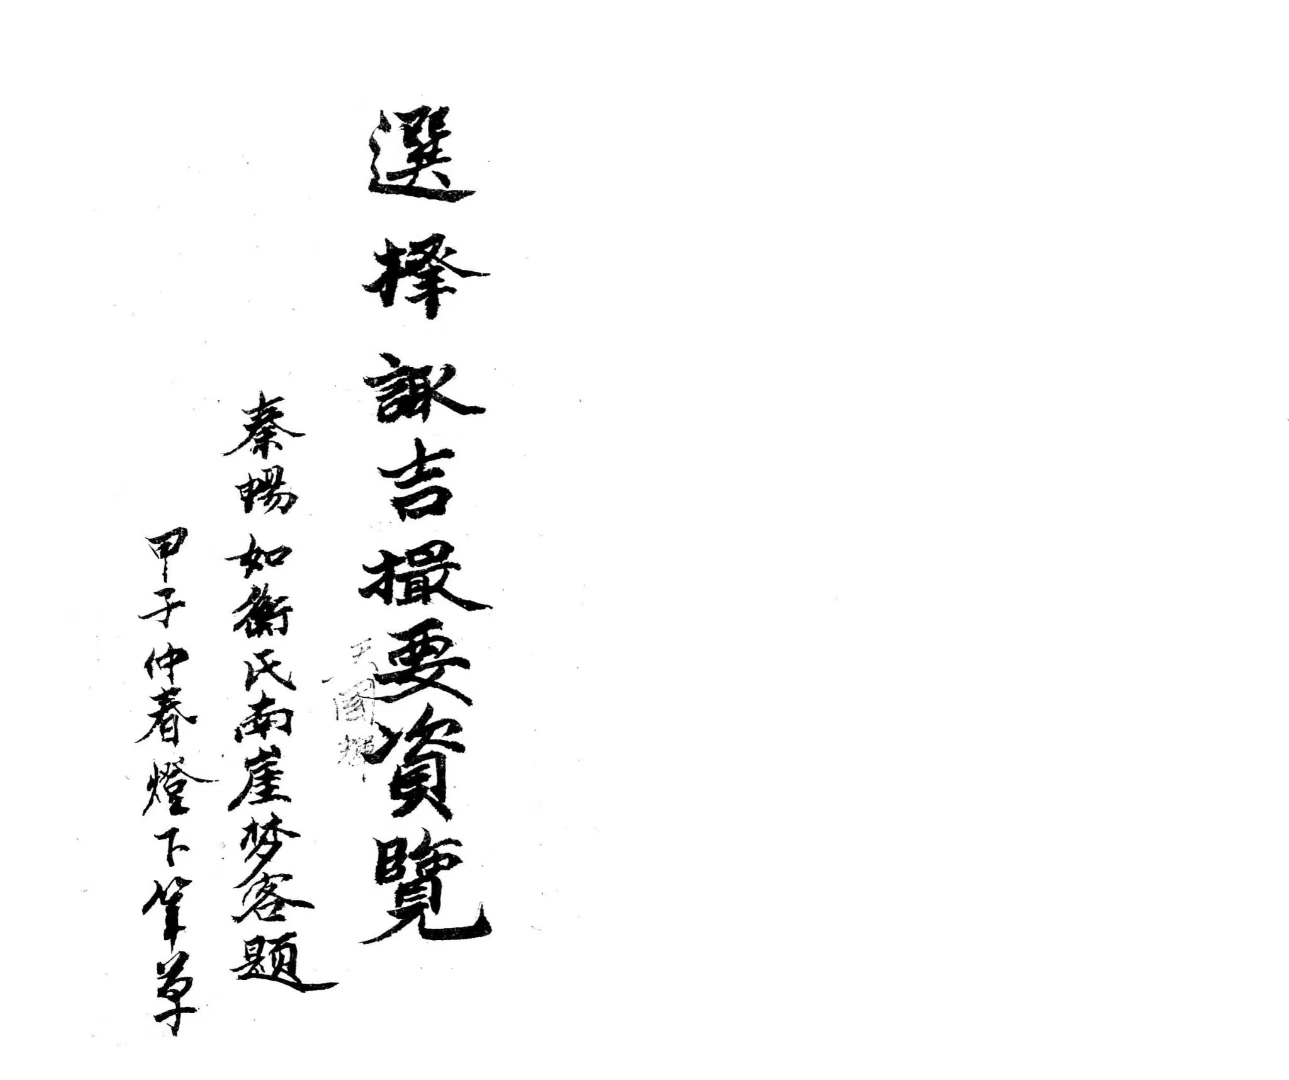 選擇諏吉撮要資覽
天國輝
秦暢如衡氏南崖梦客題
甲子仲春燈下筆草